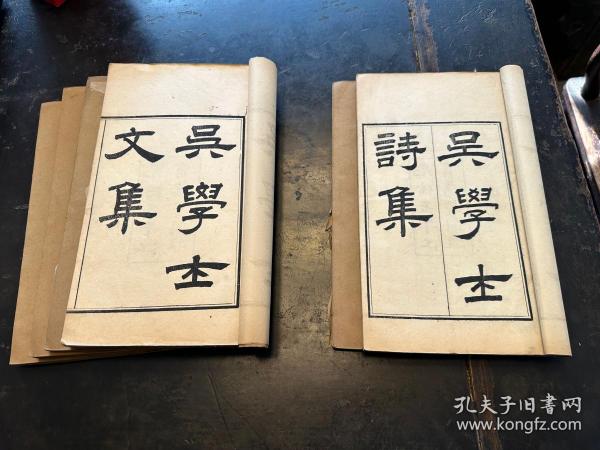 吳學士
文集
吳學士
詩集
孔夫子旧书网
www.kongfz.com